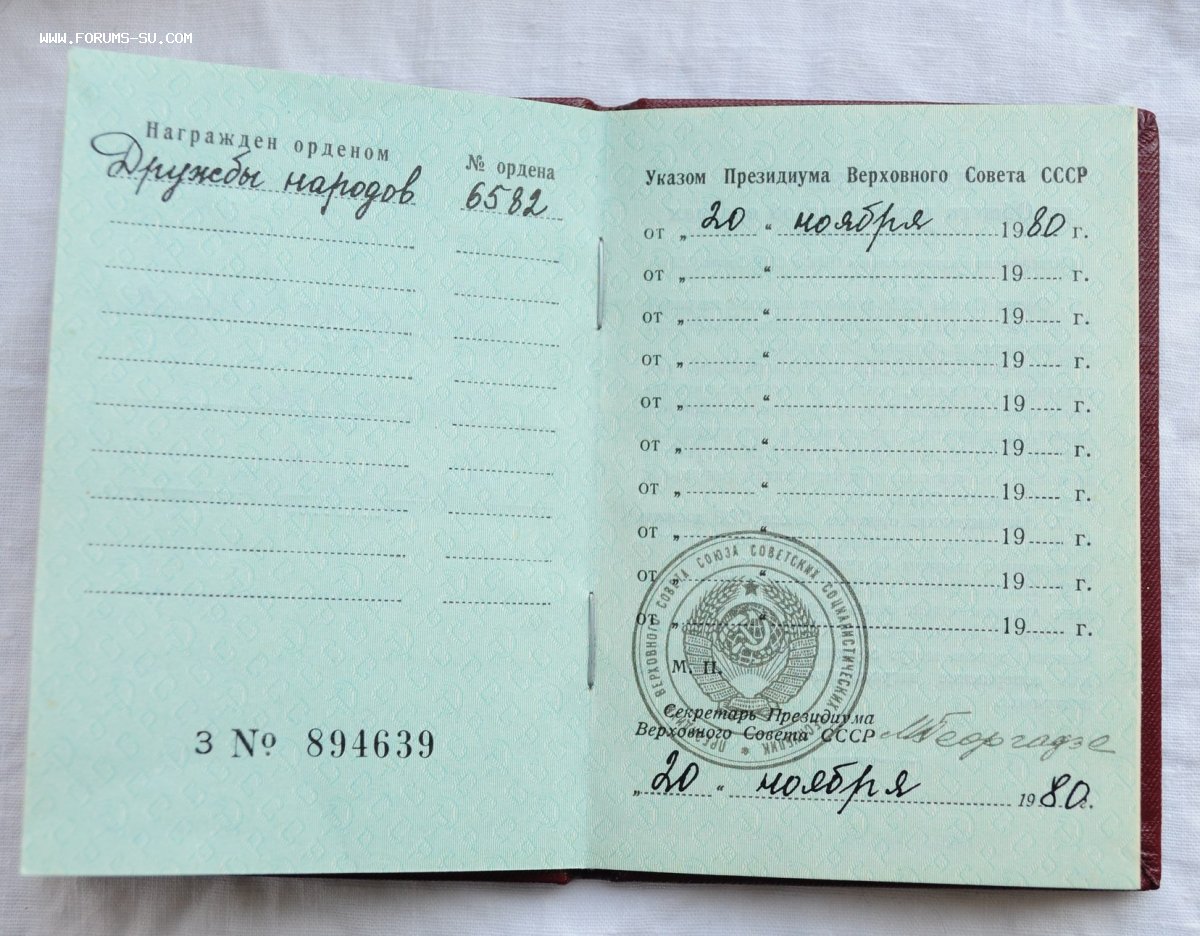 www.forums-su.com
Награжден орденом
№ ордена
Дружбы народов
6582
З № 894639
Указом Президиума Верховного Совета СССР
от „ 20 “ ноября 1980 г.
от „ “ 19 г.
от „ “ 19 г.
от „ “ 19 г.
от „ “ 19 г.
от „ “ 19 г.
от „ “ 19 г.
от „ “ 19 г.
от „ “ 19 г.
от „ “ 19 г.
ПРЕЗИДИУМ ВЕРХОВНОГО СОВЕТА СОЮЗА СОВЕТСКИХ СОЦИАЛИСТИЧЕСКИХ РЕСПУБЛИК
М. П.
Секретарь Президиума
Верховного Совета СССР
МГеоргадзе
„ 20 “ ноября 1980 г.